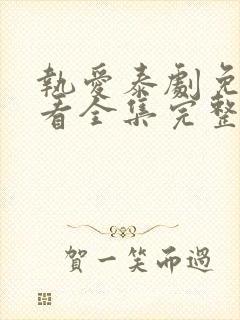 執愛泰劇免
看全集完整
賀一笑而過